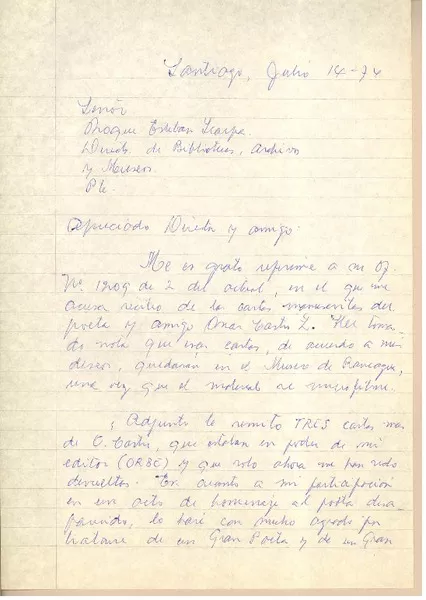 Santiago, Julio 14-74
Señor
Roque Esteban Scarpa.
Direct. de Bibliotecas, Archivo
y Museos.
Pte.
Apreciado Director y amigo:
Me es grato referirme a su Of.
Nº 1209 de 2 del actual, en el que me
acusa recibo de las cartas manuscritas del
poeta y amigo Omar Cáceres Z. He toma-
do nota que esas cartas, de acuerdo a mis
deseos, quedarán en el Museo de Rancagua,
una vez que el material se microfilme.
Adjunto le remito TRES cartas más
de O. Castro, que estaban en poder de mi
editor (ORBE) y que solo ahora me han sido
devueltas. En cuanto a mi participación
en un acto de homenaje al poeta desa-
parecido, lo haré con mucho agrado por
tratarse de un Gran Poeta y de un Gran